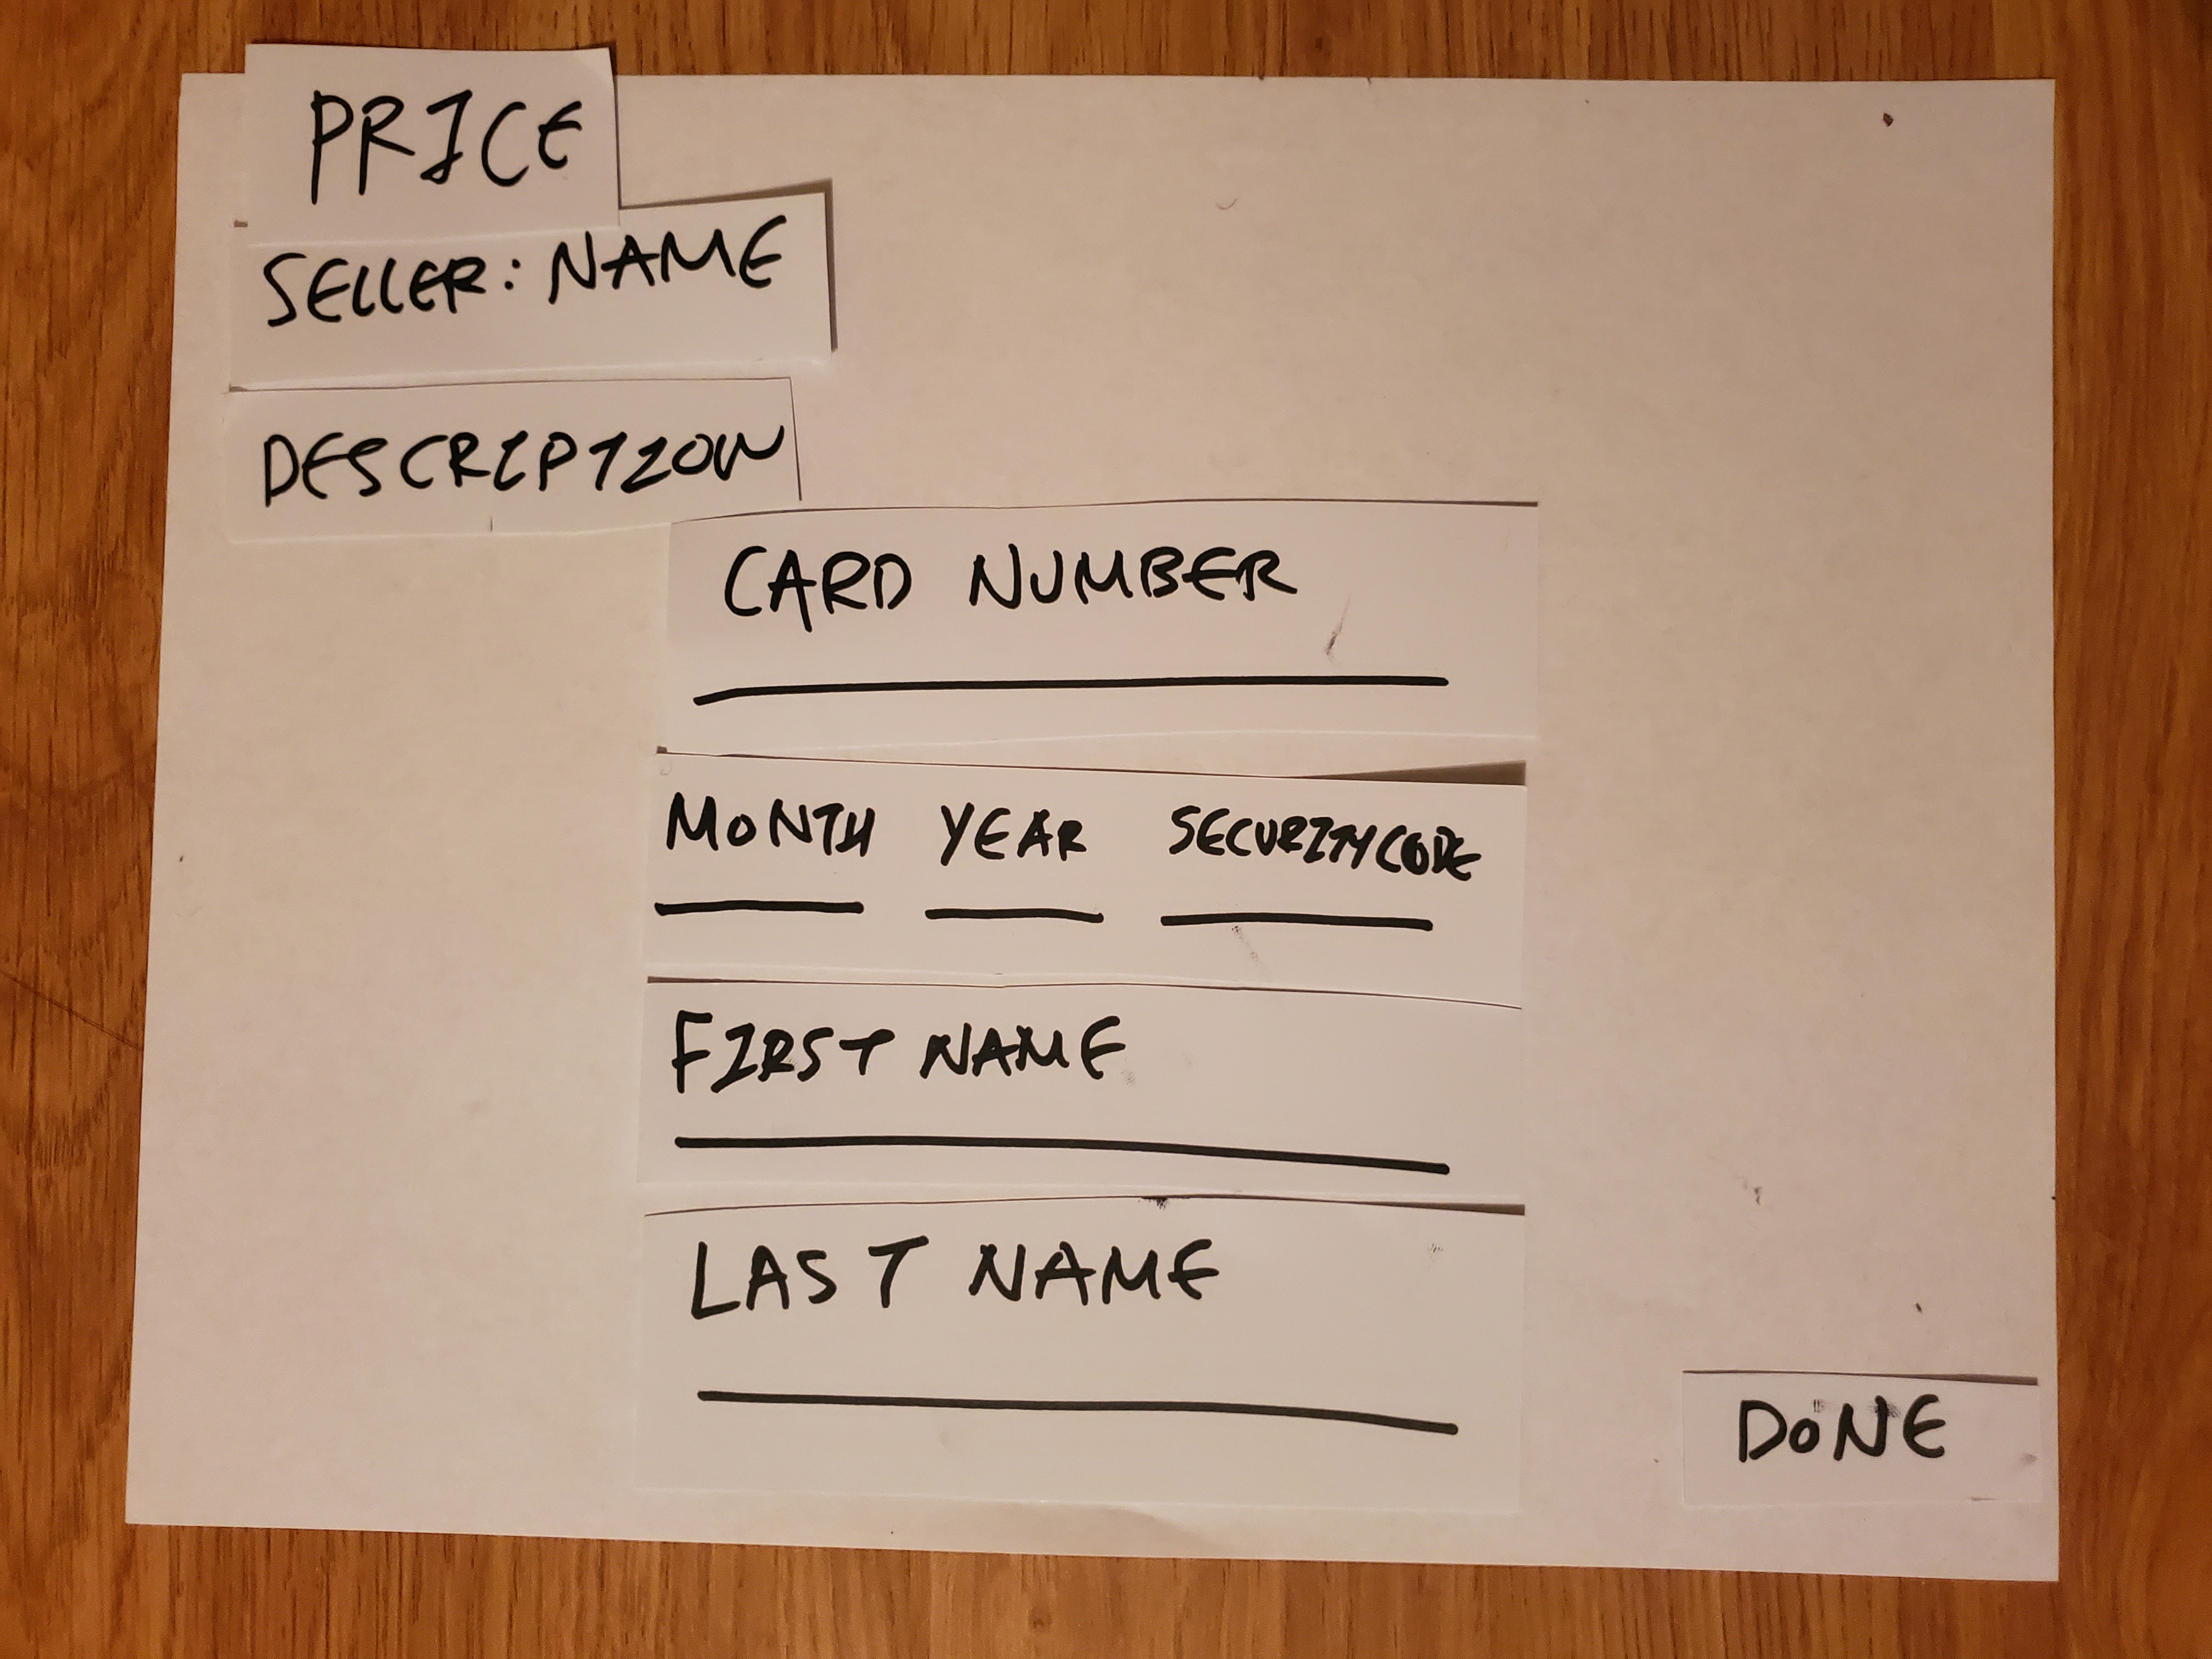 PRICE
SELLER: NAME
DESCRIPTION
CARD NUMBER
MONTH YEAR SECURITYCODE
FIRST NAME
LAST NAME
DONE